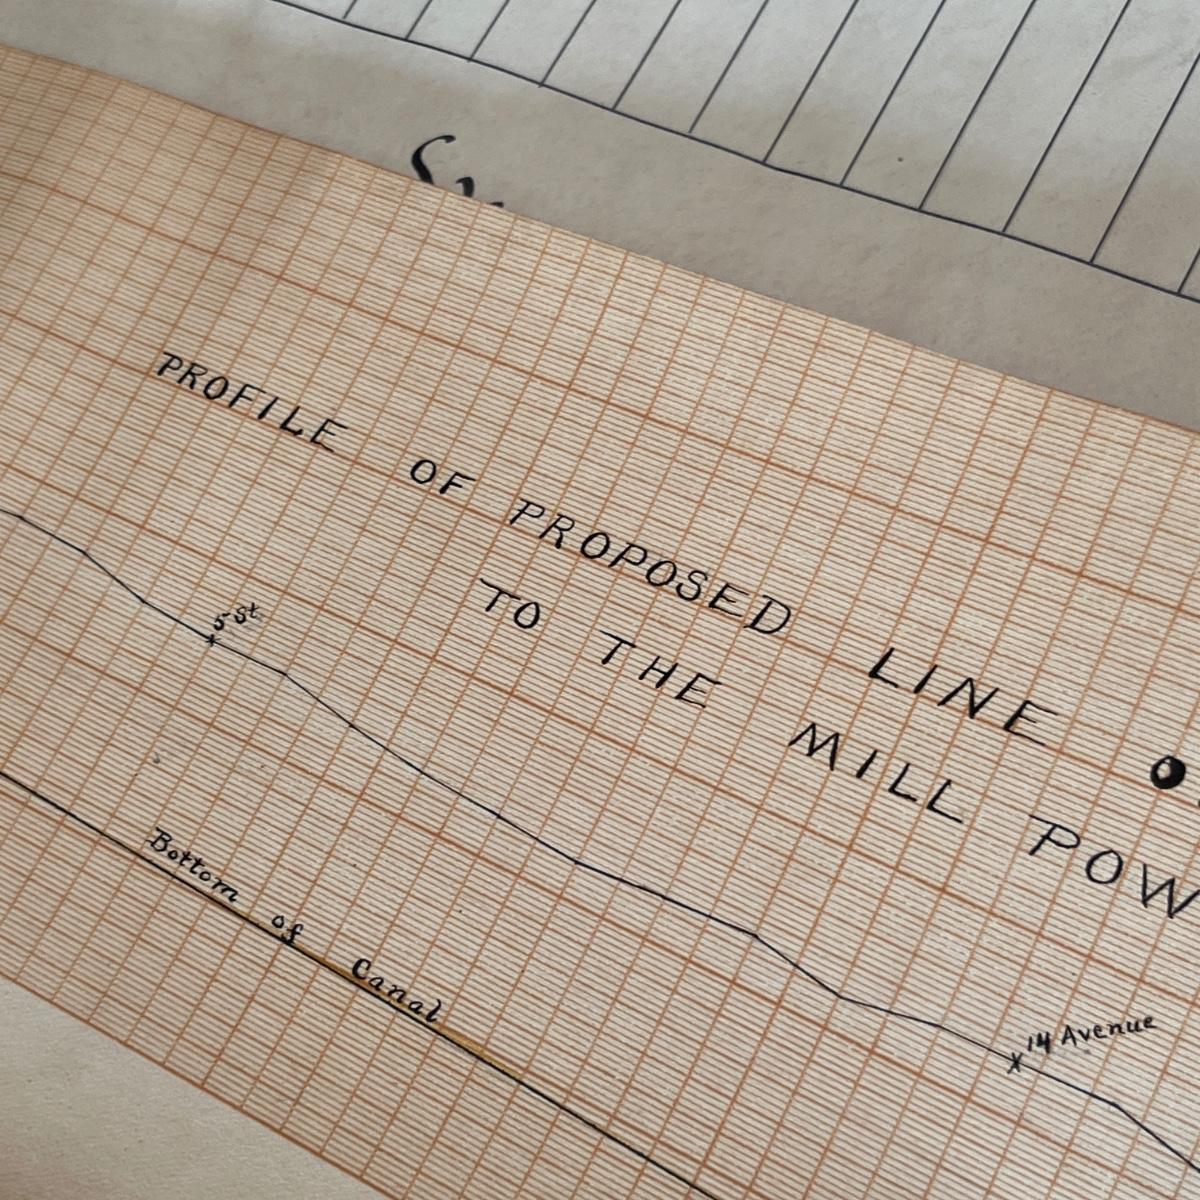 PROFILE OF PROPOSED LINE
TO THE MILL POW
5 St.
14 Avenue
Bottom of Canal